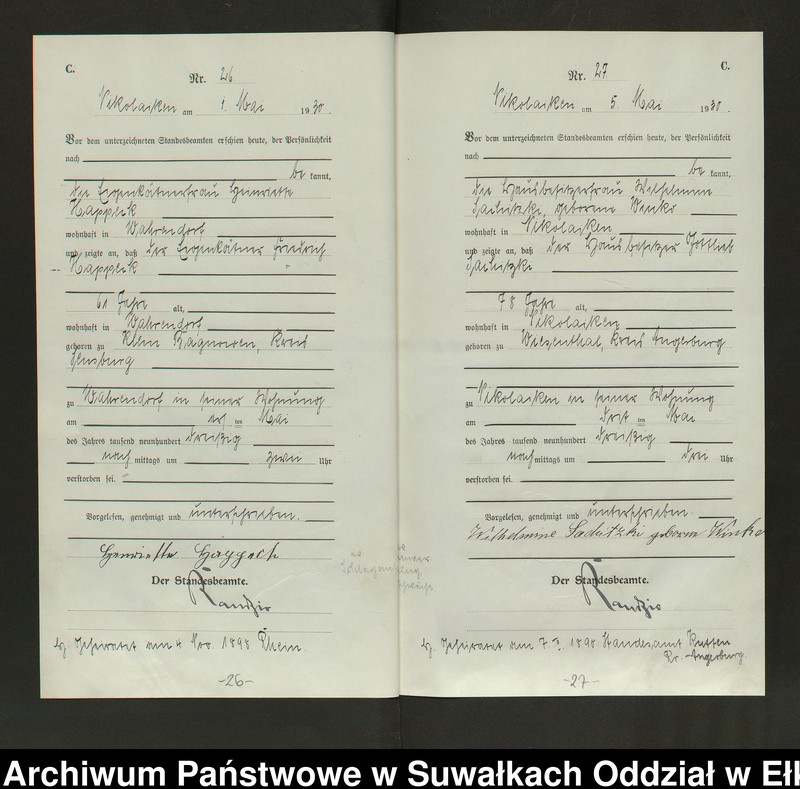 C.
Nr. 26
Nikolaiken am 1. Mai 1930.
Vor dem unterzeichneten Standesbeamten erschien heute, der Persönlichkeit
nach
be kannt,
die Eigenkätnerfrau Henriette
Happeck
wohnhaft in Wahrendorf
und zeigte an, daß der Eigenkätner Friedrich
Happeck
61 Jahre alt,
wohnhaft in Wahrendorf
geboren zu Klein Kreis
Sensburg
zu Wahrendorf in seiner Wohnung
am ersten Mai
des Jahres tausend neunhundert dreißig
nach mittags um zwei Uhr
verstorben sei.
Vorgelesen, genehmigt und unterschrieben.
Henriette Happeck
Der Standesbeamte.
Randzio
geheiratet am 4 Nov. 1898 Rhein.
-26-
C.
Nr. 27
Nikolaiken am 5. Mai 1930.
Vor dem unterzeichneten Standesbeamten erschien heute, der Persönlichkeit
nach
be kannt,
die Hausbesitzerfrau Wilhelmine
geborene
wohnhaft in Nikolaiken
und zeigte an, daß der Hausbesitzer Gottlieb
78 Jahre alt,
wohnhaft in Nikolaiken
geboren zu Kreis Angerburg
zu Nikolaiken in seiner Wohnung
am dritten Mai
des Jahres tausend neunhundert dreißig
nach mittags um drei Uhr
verstorben sei.
Vorgelesen, genehmigt und unterschrieben
Wilhelmine geborene
Der Standesbeamte.
Randzio
geheiratet am 7. 1890 Standesamt Kutten
Kr. Angerburg.
-27-
Archiwum Państwowe w Suwałkach Oddział w Eł